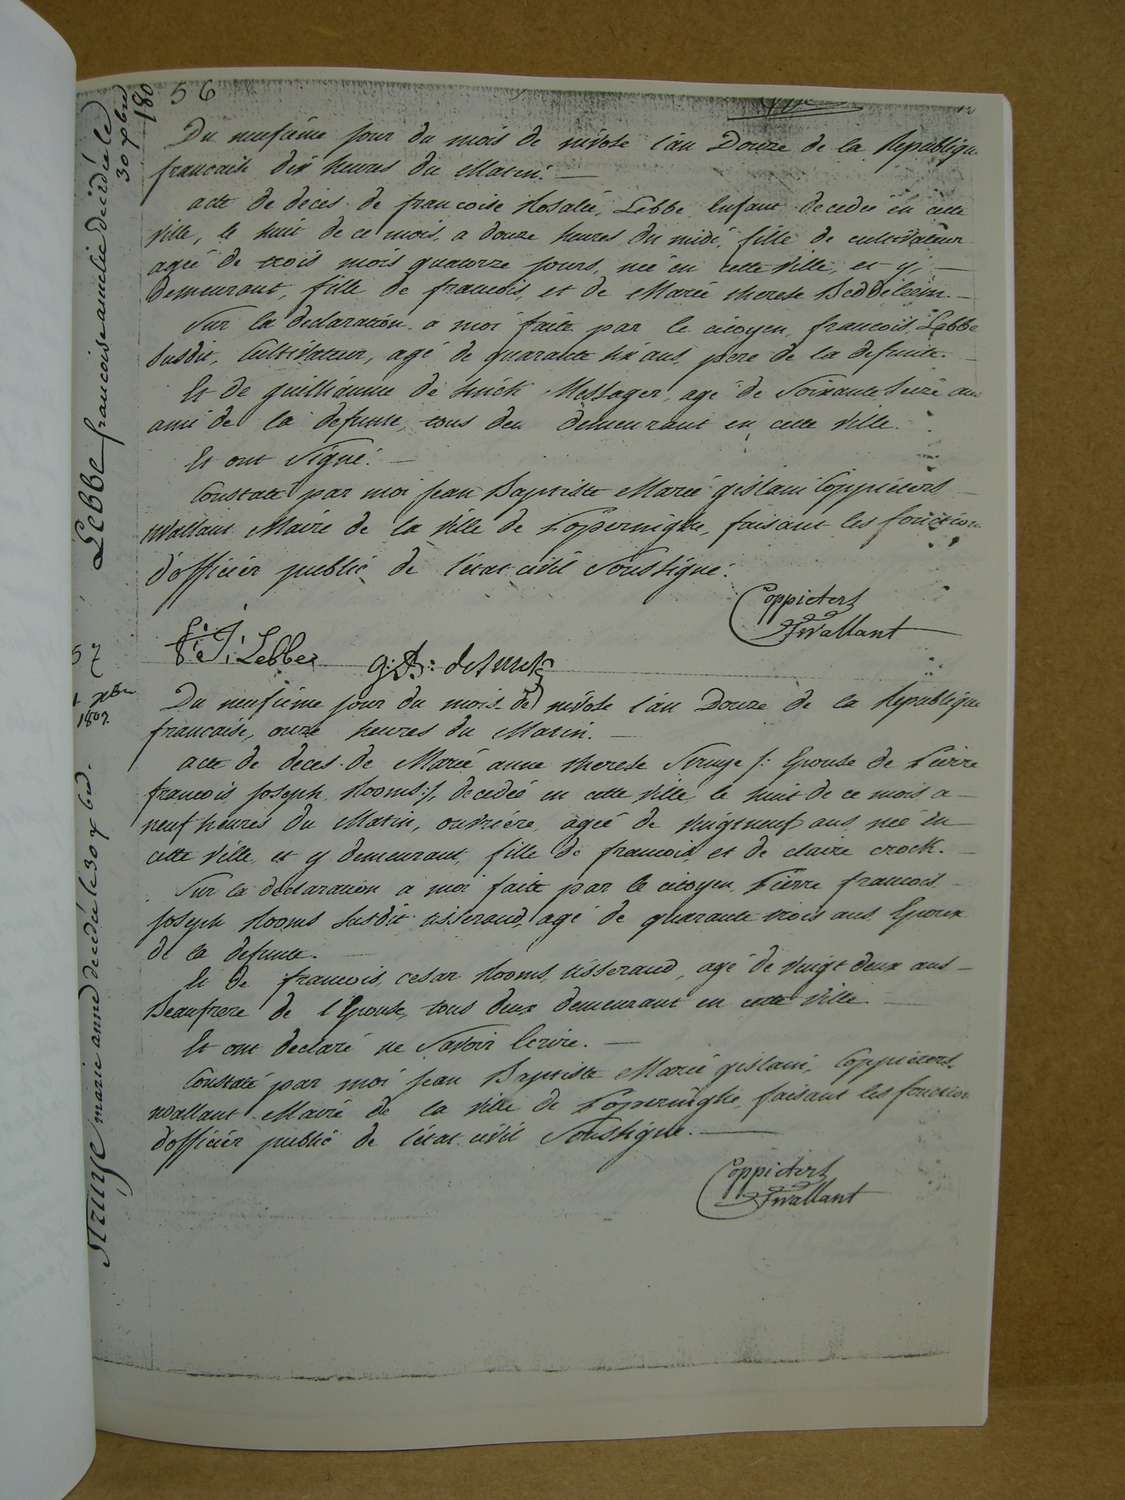 56
Lebbe francoise amelie decedée le
30 xbre
180
Du neufième jour du mois de nivôse l'an Douze de la Republique
francaise dix heures du Matin. —
acte de deces de francoise Rosalie Lebbe Enfant decedée en cette
ville, le huit de ce mois, a douze heures du midi, fille de cultivateur
ageé de trois mois quatorze jours, neé en cette ville, et y, —
demeurant, fille de francois, et de Marie therese Beddeleem. —
Sur la declaration a moi faite par le citoyen francois Lebbe
susdit Cultivateur, agé de quarante six ans, pere de la defunte. —
Et de guilliaume de Messager, agé de soixante seize ans
ami de la defunte, tous deu demeurant en cette ville.
Et ont Signé. —
Constaté par moi jean Baptiste Marié gislain Coppieters
wallant Maire de la Ville de Poperinghe, faisant les fonction
d'officier public de l'etat civil Soussigné.
Coppieters
Twallant
F: J: Lebbe
57
1 xbre
180
Struye marie anne decedée le 30 xbre
Du neufième jour du mois de nivôse l'an Douze de la Republique
francaise, onze heures du Matin. —
acte de deces de Marié anne therese Struye /: Epouse de Pierre
francois joseph Rooms :/, decedeé en cette ville le huit de ce mois a —
neuf heures du Matin, ouvrière, ageé de vingtneuf ans neé en —
cette ville et y demeurant, fille de francois, et de claire crock. —
Sur la declaration a moi faite par le citoyen Pierre francois
joseph Rooms susdit tisserand, agé de quarante trois ans Epoux
de la defunte. —
Et de francois cesar Rooms, tisserand, agé de vingt deux ans —
Beaufrere de l'Epouse, tous deux demeurant en cette ville. —
Et ont declaré ne Savoir Ecrire. —
Constaté par moi jean Baptiste Marié gislain Coppieters
wallant Maire de la ville de Poperinghe faisant les fonction
d'officier public de l'etat civil Soussigné. —
Coppieters
Twallant